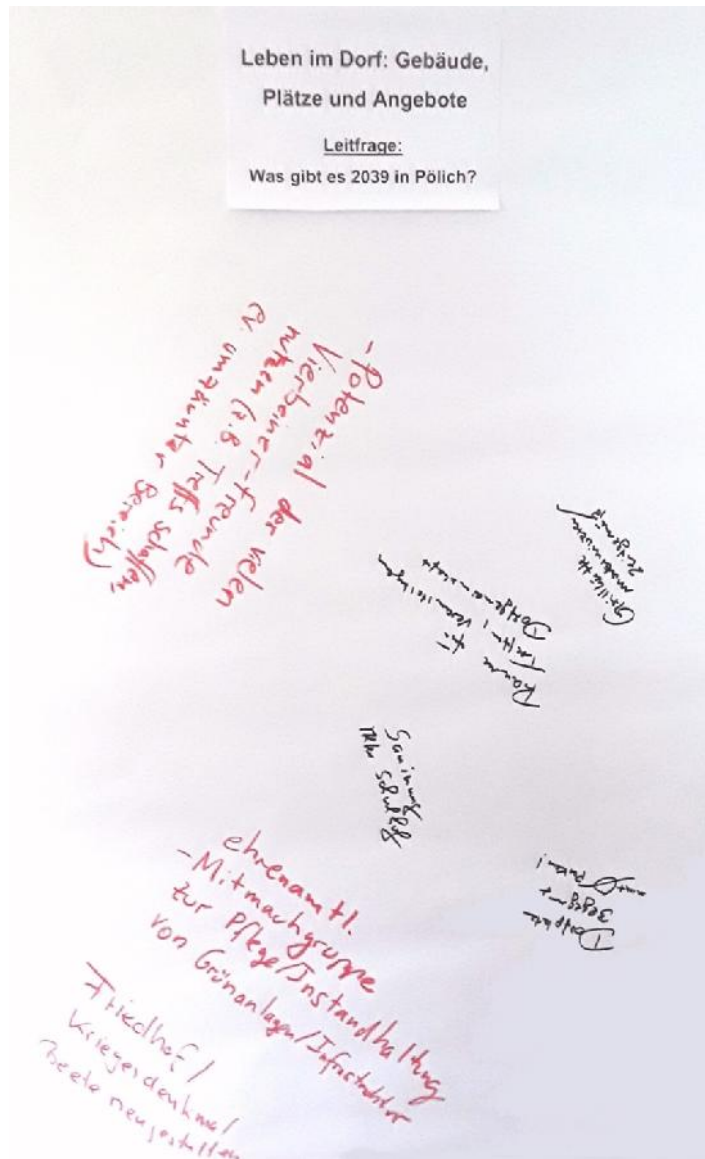 Leben im Dorf: Gebäude,
Plätze und Angebote
Leitfrage:
Was gibt es 2039 in Pölich?
- Potenzial der vielen
Vierbeiner-Freunde
nutzen (z.B. Treffs schaffen,
ev. umzäunter Bereich)
Grillhütte
modernisieren
zeitgemäß
Räume für
Treffen / Vereine
Dorfgemeinschaft
Sanierung
Schulhof
Dorfplatz
ehrenamtl.
- Mitmachgruppe
zur Pflege/Instandhaltung
von Grünanlagen/Infrastruktur
Friedhof/
Kriegerdenkmal
Beete neugestalten